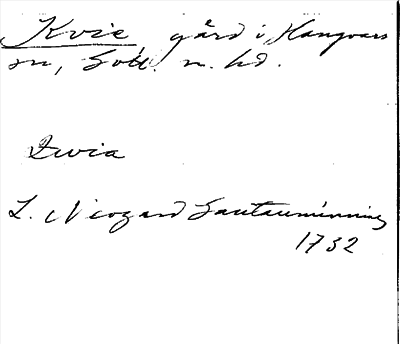 Kvie gård i Hangvars
sn, Gotl. n. hd.
Qvia
L. Neogard Gautauminning
1732